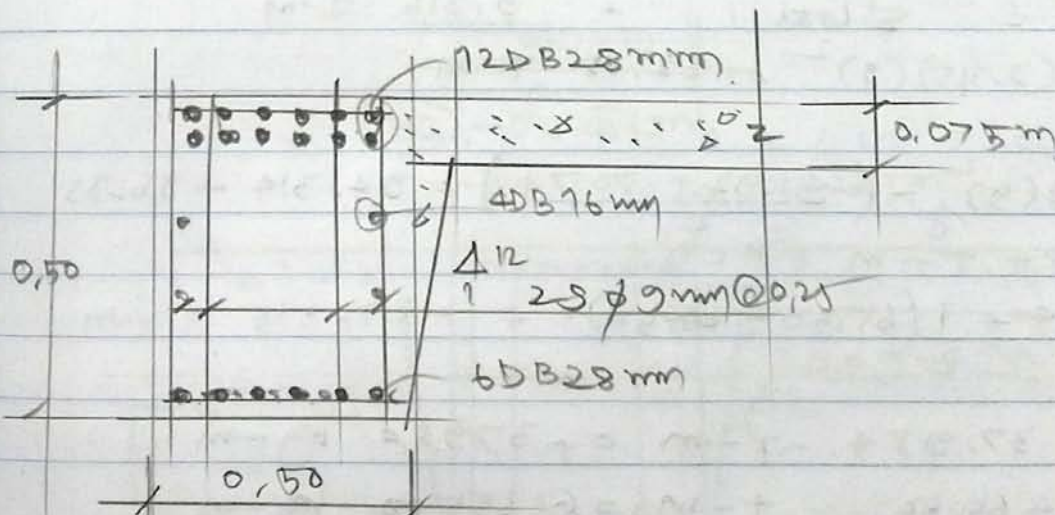 12DB28mm.
0,075m
4DB16mm
0,50
12
1
2S φ9mm@0,25
6DB28mm
0,50